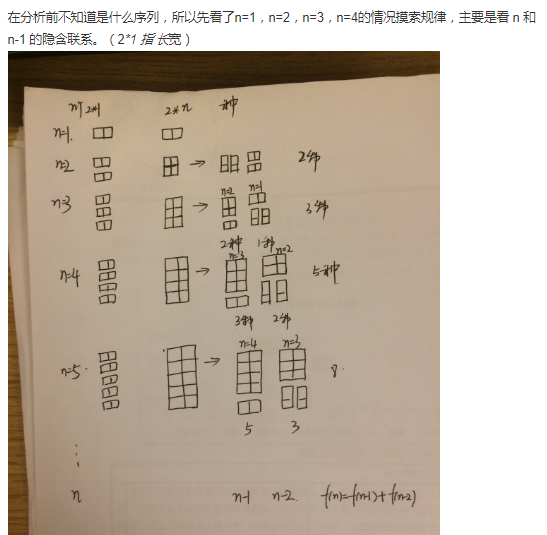 在分析前不知道是什么序列，所以先看了n=1，n=2，n=3，n=4的情况摸索规律，主要是看 n 和
n-1 的隐含联系。（2*1 指 长宽）
n个 2*1 2*n 一种
n=1.
n=2 → 2种
n=2 n=1
n=3 → 3种
2种 1种
n=3 n=2
n=4 → 5种
3种 2种
n=4 n=3
n=5. → 8.
5 3
⋮
n n-1 n-2. f(n)=f(n-1)+f(n-2)